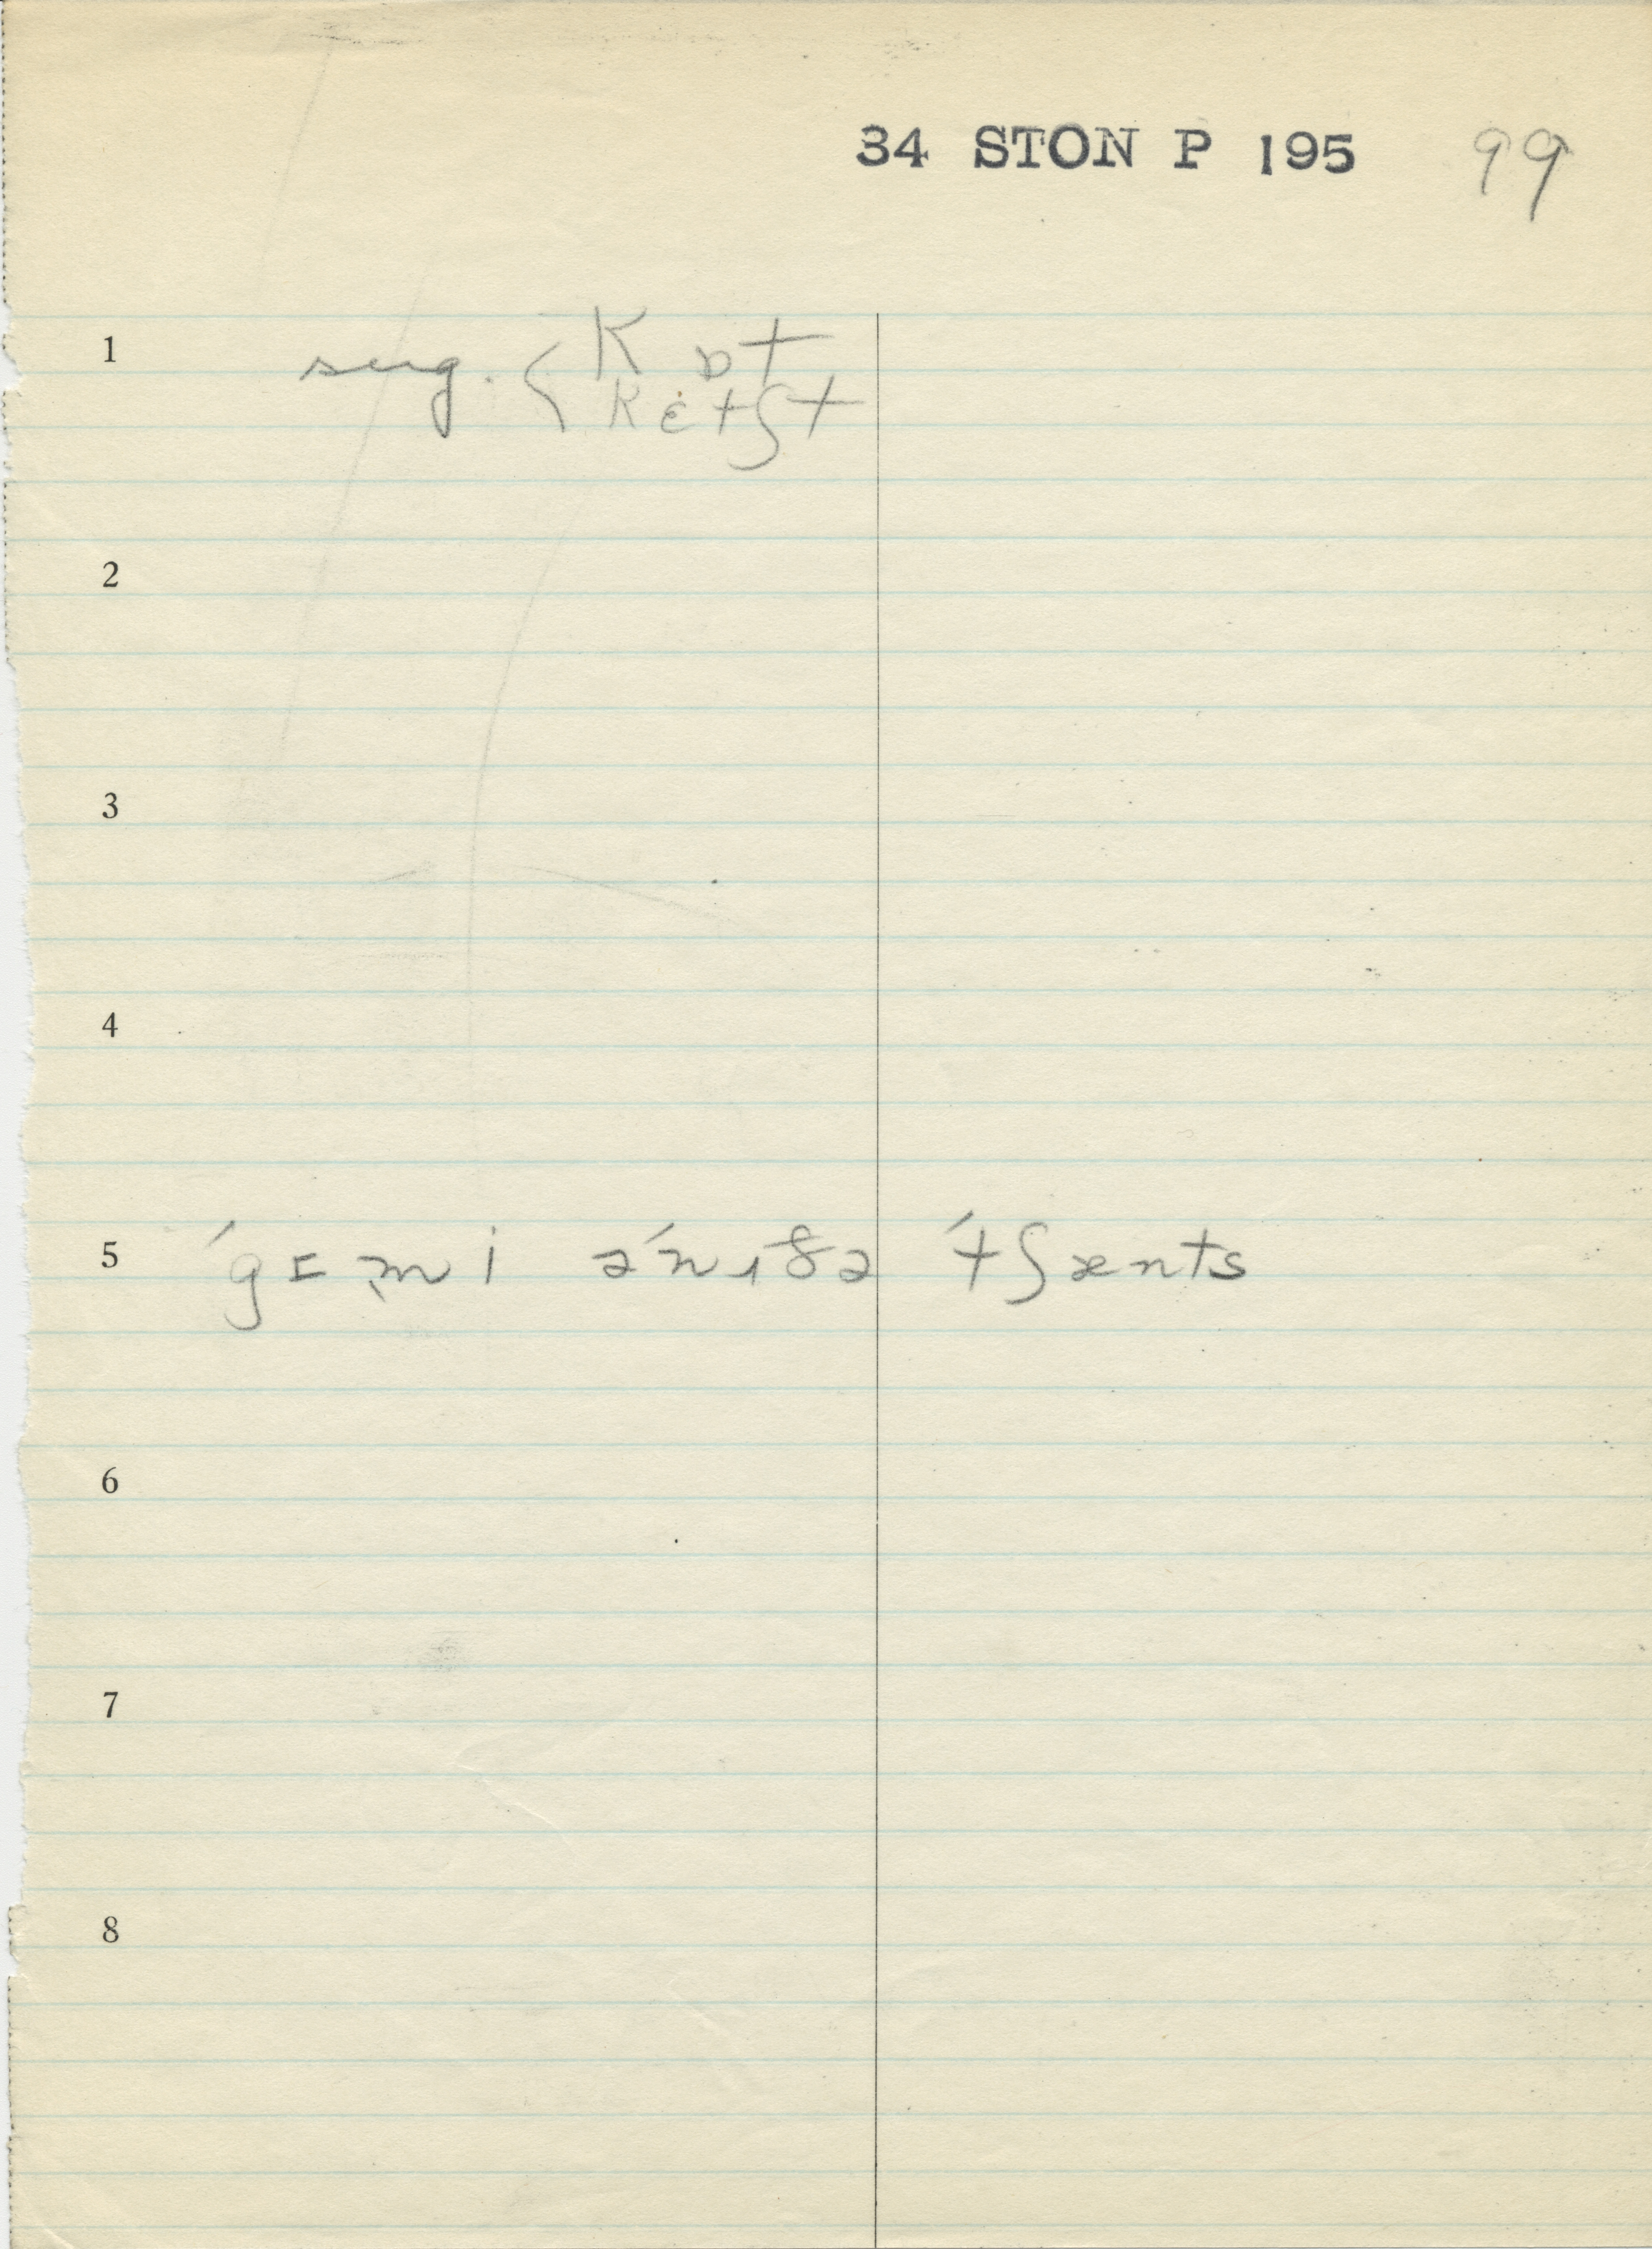 34 STON P 195 99
1 sug. { K ɒt
kɛtʃt
2
3
4
5 ˈgɪmi əˈnɪðə ˈtʃænts
6
7
8